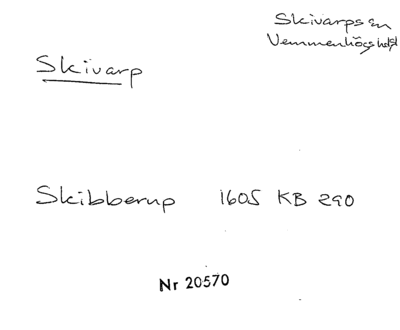 Skivarps sn
Vemmenhögs hd
Skivarp
Skibberup 1605 KB 290
Nr 20570